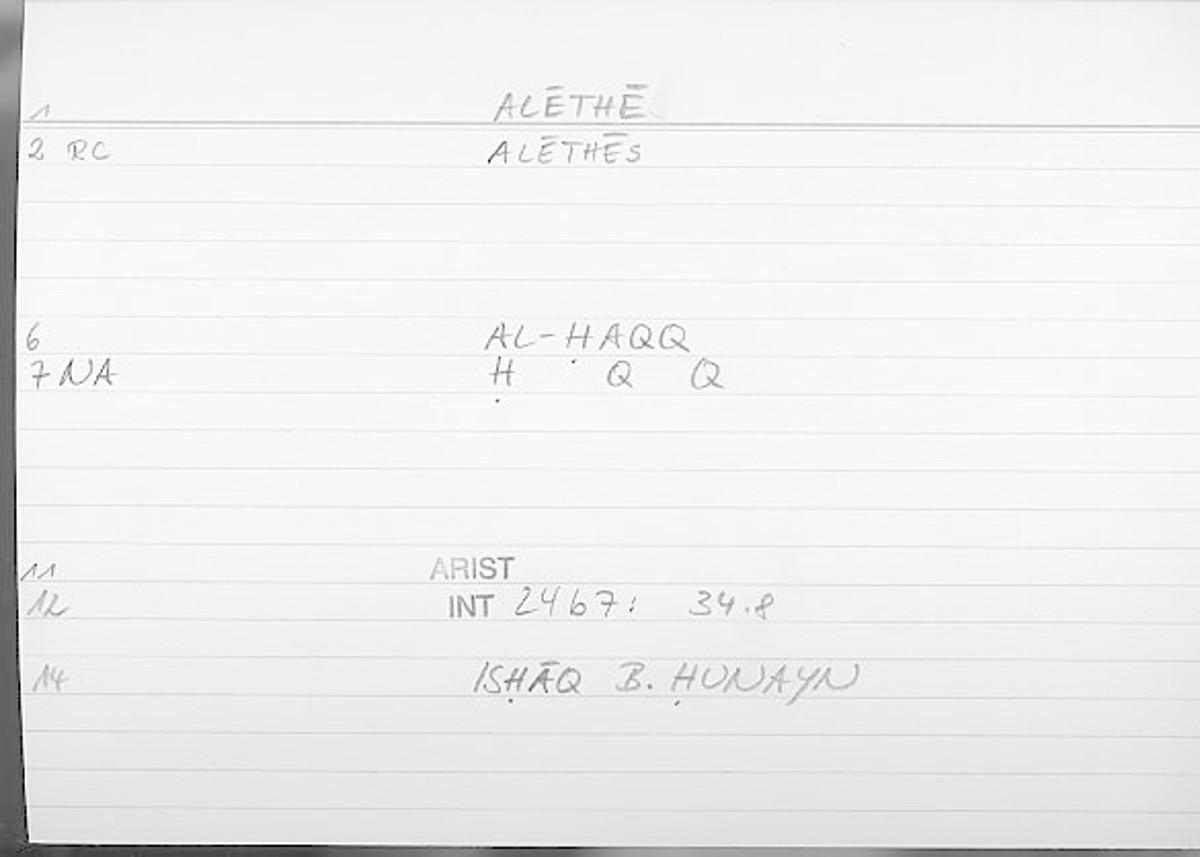 1 ALĒTHĒ
2 RC ALĒTHĒS
6 AL-ḤAQQ
7 NA Ḥ Q Q
11 ARIST
12 INT 24b7: 34.8
14 ISḤĀQ B. ḤUNAYN